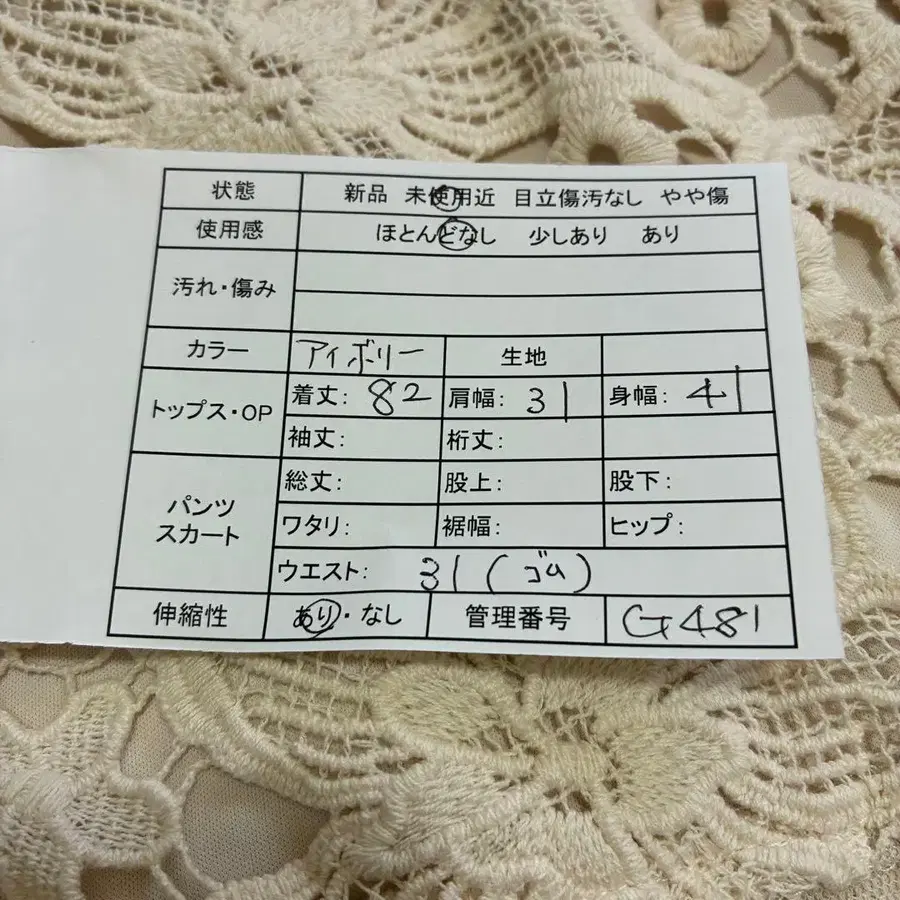 状態 新品 未使用近 目立傷汚なし やや傷
使用感 ほとんどなし 少しあり あり
汚れ・傷み
カラー アイボリー 生地
トップス・OP 着丈: 82 肩幅: 31 身幅: 41
袖丈: 裄丈:
パンツ
スカート
総丈: 股上: 股下:
ワタリ: 裾幅: ヒップ:
ウエスト: 31(ゴム)
伸縮性 あり・なし 管理番号 G481